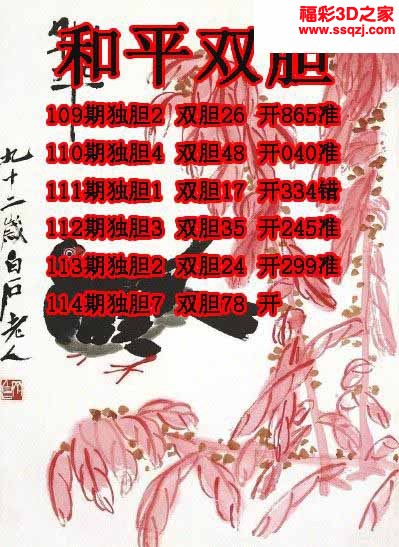 福彩3D之家
www.ssqzj.com
和平双胆
109期独胆2 双胆26 开865准
110期独胆4 双胆48 开040准
111期独胆1 双胆17 开334错
112期独胆3 双胆35 开245准
113期独胆2 双胆24 开299准
114期独胆7 双胆78 开
九十二岁白石老人